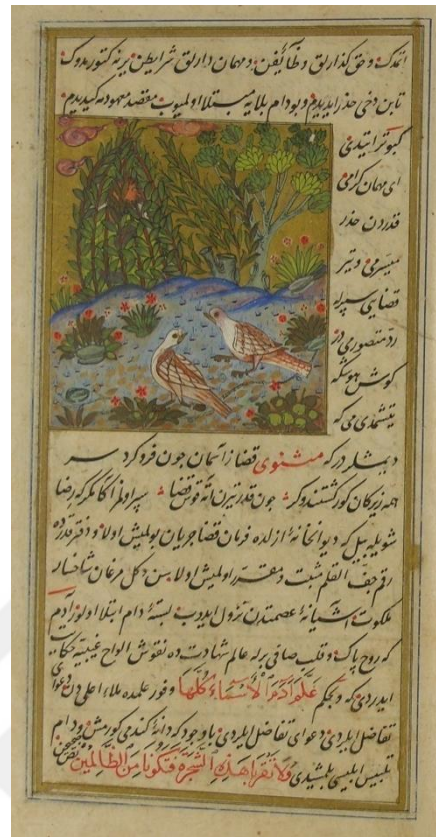 اتمدك و حق كذارلق وظائفن و مهمان دارلق شرايطن يرينه كتورمدوك
تا بن دخی حذر ايديدم و بو دام بلايه مبتلا اولميوب مقصد معهودمه كيديدم
كبوتر ايتدی
ای مهمان كرامی
قدردن حذر
ميسرمی در
قضايی سپرله
رد متصوری در
كوش هوشكه
يتشمدی می كه
ديمشلر در كه مثنوی قضا ز آسمان چون فرو كرد سر
همه زيركان كور كشتند و كر چون قدر تيرن آته قوس قضا سپر اولمز اكا مكر كه رضا
شويله بيل كه ديوانخانۀ ازلده فرمان قضا جريان بولمش اولا و دفتر قدرده
رقم جف القلم مثبت و مقرر اولمش اولا سن دكل مرغان شاخسار
ملكوت آشيانۀ عصمتدن نزول ايدوب بستۀ دام ابتلا اولور آدم
كه روح پاك و قلب صافی برله عالم شهادت ده نقوش الواح غيبيه حكايت
ايدردی كه و بحكم عَلَّمَ آدَمَ الْأَسْمَاءَ كُلَّهَا وفور علمده ملاء اعلی دن دعوای
تفاضل ايلردی دعوای تفاضل ايلردی با وجود كه دانۀ كندمی كورمش و دام
تلبيس ابليسی بلمشيدی وَلَا تَقْرَبَا هَذِهِ الشَّجَرَةَ فَتَكُونَا مِنَ الظَّالِمِينَ نص